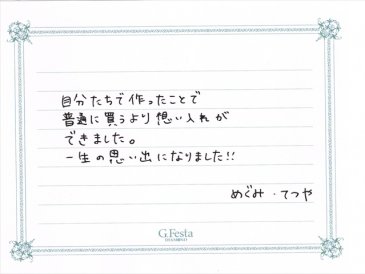 自分たちで作ったことで
普通に買うより想い入れが
できました。
一生の思い出になりました!!
めぐみ・てつや
G.Festa